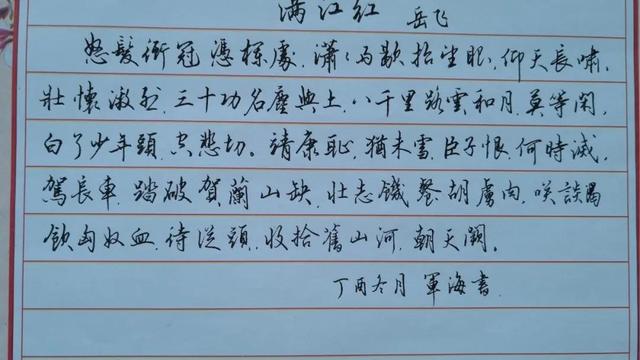 满江红 岳飞
怒髮衝冠,憑欄處,瀟〻雨歇,抬望眼,仰天長嘯,
壯懷激烈,三十功名塵與土,八千里路雲和月,莫等閑,
白了少年頭,空悲切。靖康恥,猶未雪,臣子恨,何時滅,
駕長車,踏破賀蘭山缺,壯志饑餐胡虜肉,笑談渴
飲匈奴血,待從頭,收拾舊山河,朝天闕。
丁酉冬月 軍海書